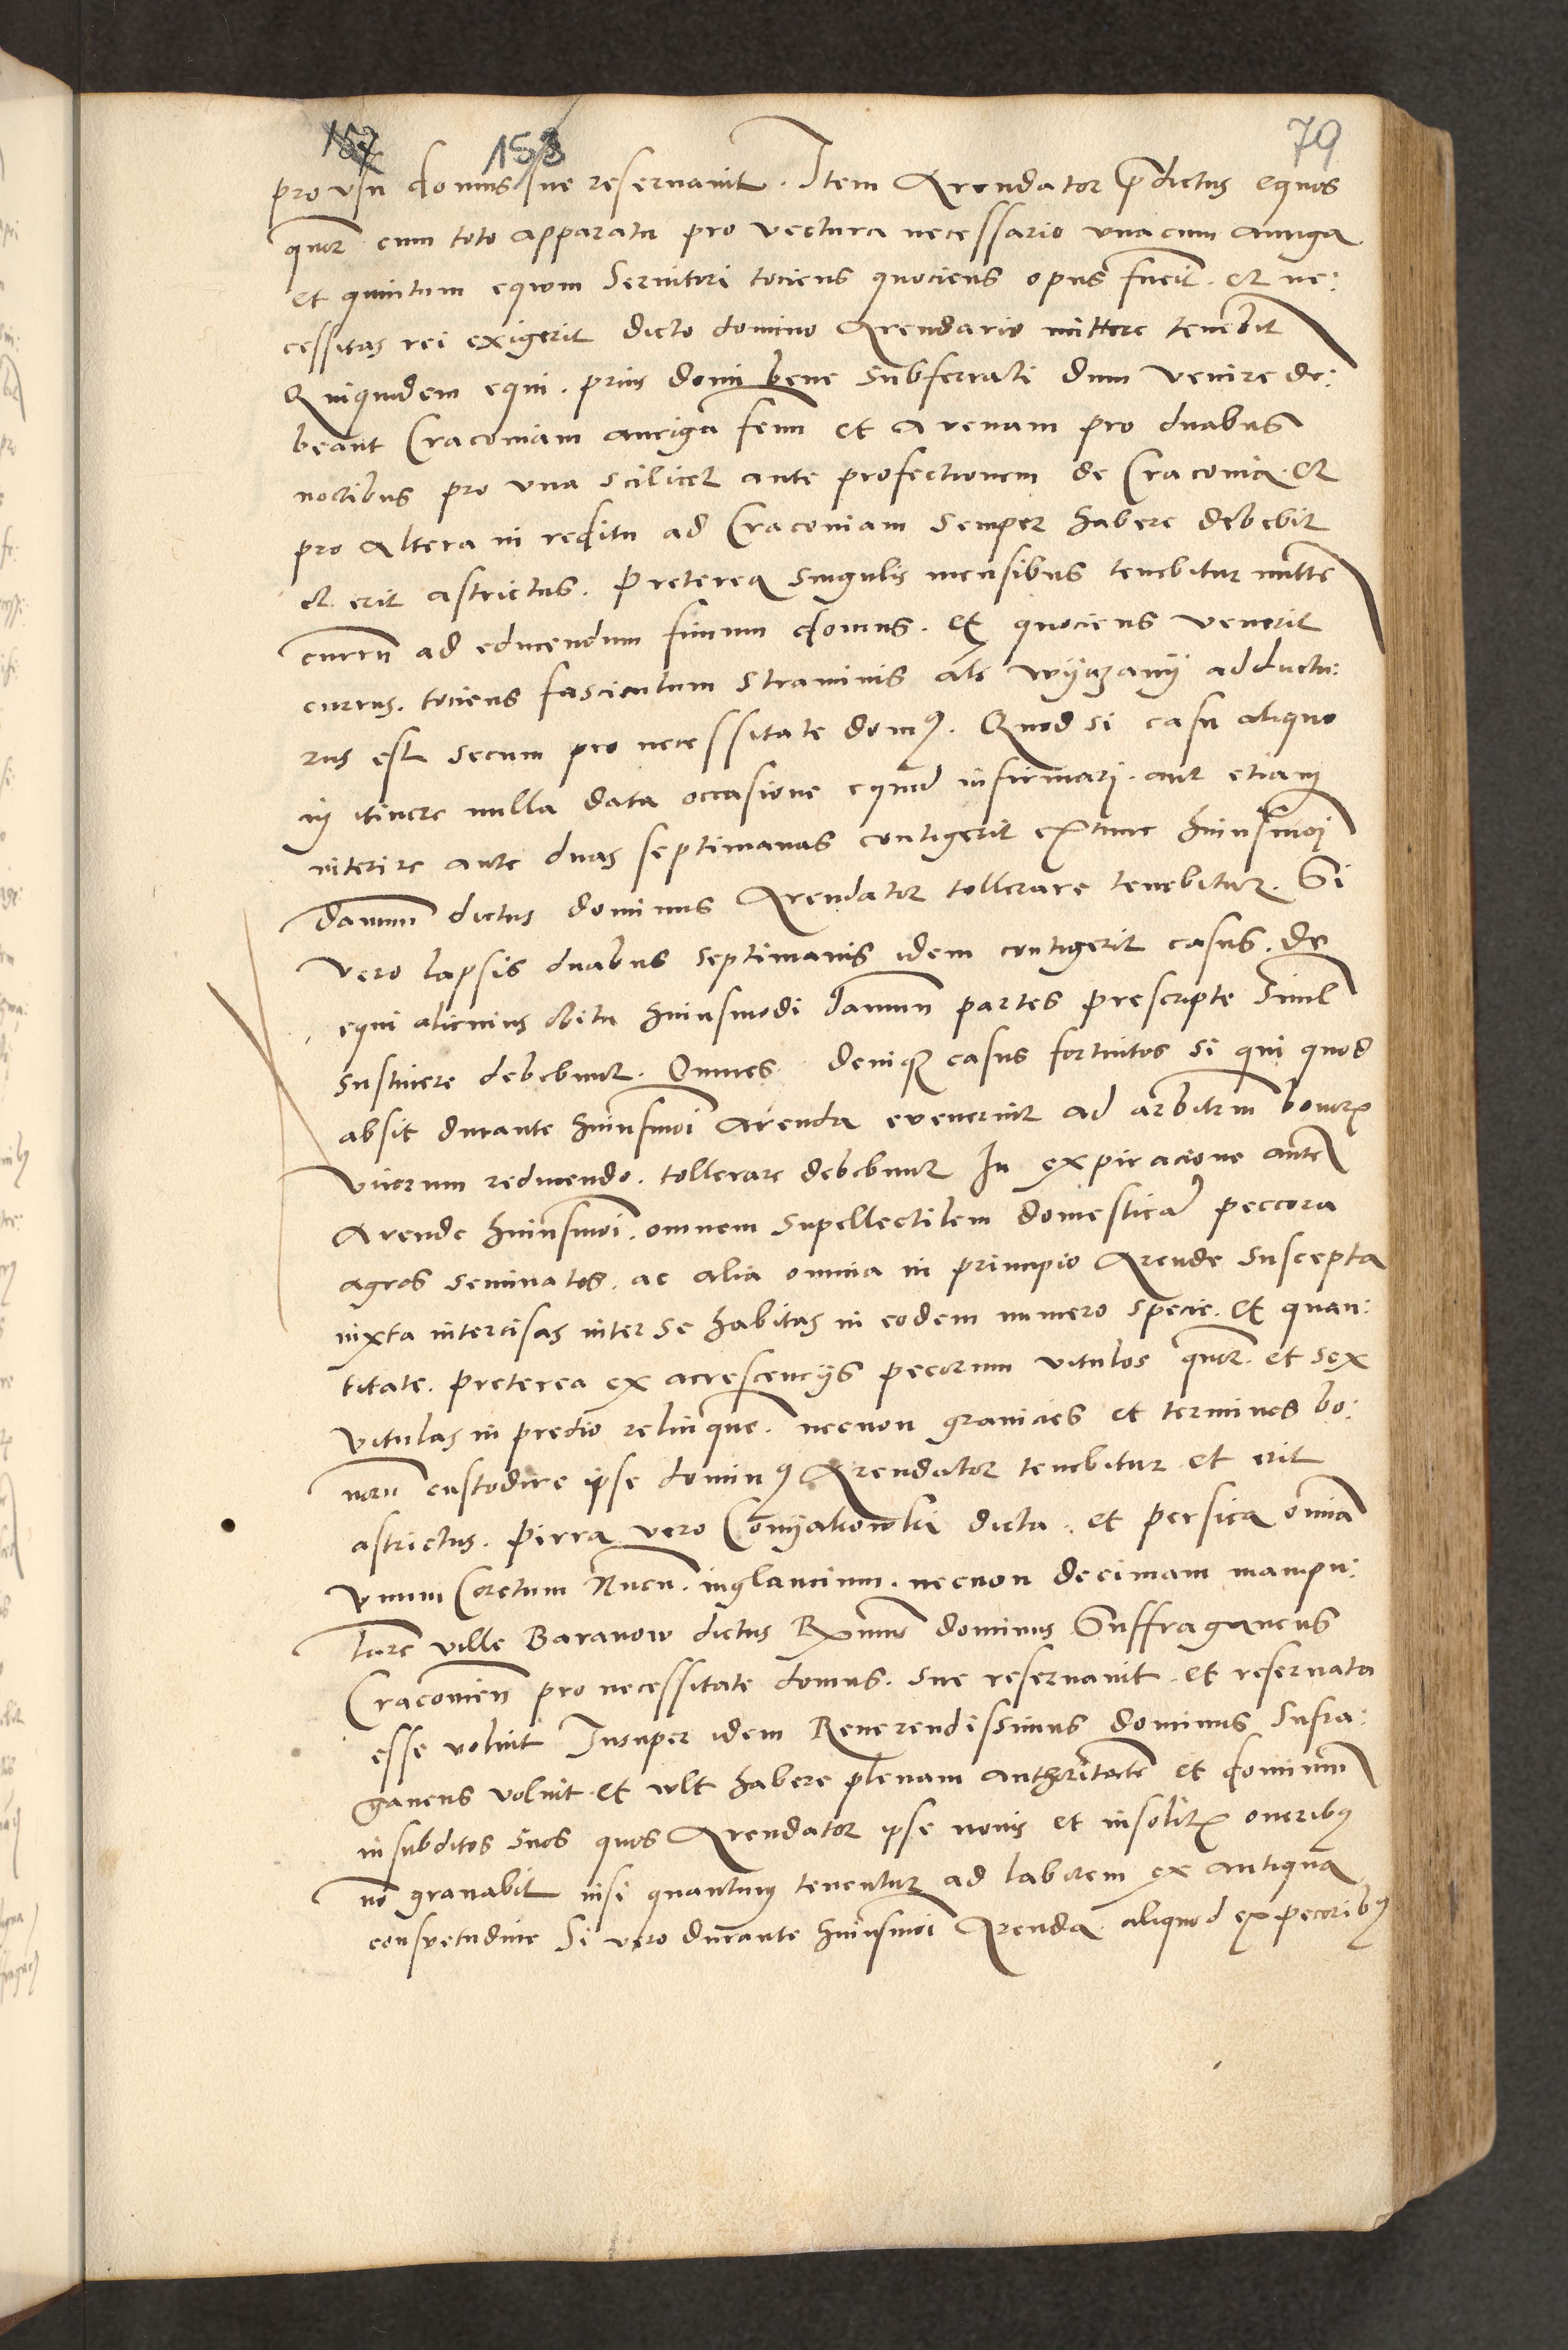 157 158 79
pro vsu domus sue reseruauit. Item Arendator pdictus equos
quor cum toto apparatu pro vectura necessario vnacum auriga
et quintum equum Seruitori tociens quociens opus fueit. et ne:
cessitas rei exigerit dicto domino Arendario mittere tenebit
Quiquidem equi. prius domi bene subferrati dum venire de:
beant Cracouiam auriga fenu et Avenam pro duabus
noctibus pro vna scilicet ante profectionem de Cracouia. et
pro altera in reditu ad Cracouiam semper habere debebit
et erit astrictus. Preterea singulis mensibus tenebitur mitte
curru ad educendum fimum domus. et quociens venerit
currus. tociens fasciculum straminis als wyązany adductu:
rus est secum pro necessitate domus. Quod si casu aliquo
in itinere nulla data occasione equu infirmari. aut etiam
interire ante duas septimanas contigerit extunc huiusmoi
damnu dictus dominus Arendator tollerare tenebitur. Si
vero lapsis duabus septimanis idem contigerit casus. de
equi alicuius obitu huiusmodi damnu partes prescripte simul
sustinere debebunt. Omnes deniq casus fortuitos si qui quod
absit durante huiusmoi arenda euenerint ad arbitrium bonor
virorum reducendo. tollerare debebunt In expiracione autem
Arende huiusmoi. omnem supellectilem domestica peccora
agros seminatos. ac alia omnia in principio Arende suscepta
iuxta intercisas inter se habitas in eodem numero specie. et quan:
titate. preterea ex acrescencijs pecorum vitulos quor. et sex
vitulas in predio relinque. necnon granicies et terminos bo:
noru custodire ipse dominus Arendator tenebitur et erit
astrictus. Pirra vero Conyalowki dicta. et persica omia
vnum Coretum Nucu. inglancium. necnon decimam manipu:
lare ville Baranow dictus Rmus dominus Suffraganeus
Cracouien pro necessitate domus. sue reseruauit. et reseruata
esse voluit Insuper idem Reuerendissimus dominus Sufra:
ganeus voluit et vlt habere plenam authoritatem et dominium
in subditos suos quos Arendator ipse nouis et insolitis oneribus
no grauabit nisi quantum tenentur ad laborem ex antiqua
consvetudine Si vero durante huiusmoi Arenda. aliquod ex pecoribus